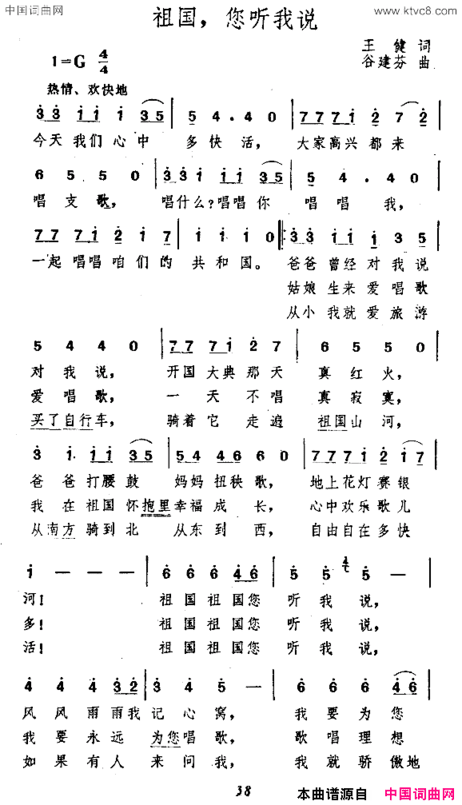 中国词曲网
祖国，您听我说
www.ktvc8.com
1=G 4/4
王健 词
谷建芬 曲
热情、欢快地
3 3 i i i 3 5 | 5 4. 4 0 | 7 7 7 i 2 7 2 |
今天我们心中 多快活， 大家高兴都来
6 5 5 0 | 3 3 i i i 3 5 | 5 4. 4 0 |
唱支歌， 唱什么？唱唱你 唱唱我，
7 7 7 7 i 2 i 7 | i i i 0 |: 3 3 i i i 3 5 |
一起唱唱咱们的 共和国。 爸爸曾经对我说
姑娘生来爱唱歌
从小我就爱旅游
5 4 4 0 | 7 7 7 7 i 2 7 | 6 5 5 0 |
对我说， 开国大典那天 真红火，
爱唱歌， 一天不唱 真寂寞，
买了自行车， 骑着它走遍 祖国山河，
3 i i i i 3 5 | 5 4 5 4 6 6 0 | 7 7 7 i 2 i 7 |
爸爸打腰鼓 妈妈扭秧歌， 地上花灯赛银
我在祖国怀抱里幸福成长， 心中欢乐歌儿
从南方骑到北 从东到西， 自由自在多快
i — — — | 6 6 6 4 6 | 5 5 5 — |
河！ 祖国祖国您 听我说，
多！ 祖国祖国您 听我说，
活！ 祖国祖国您 听我说，
4 4 4 3 2 | 3 4 5 — | 6 6 6 4 6 |
风风雨雨我记心窝， 我要为您
我要永远 为您唱歌， 歌唱理想
如果有人来问我， 我就骄傲地
38
本曲谱源自
中国词曲网